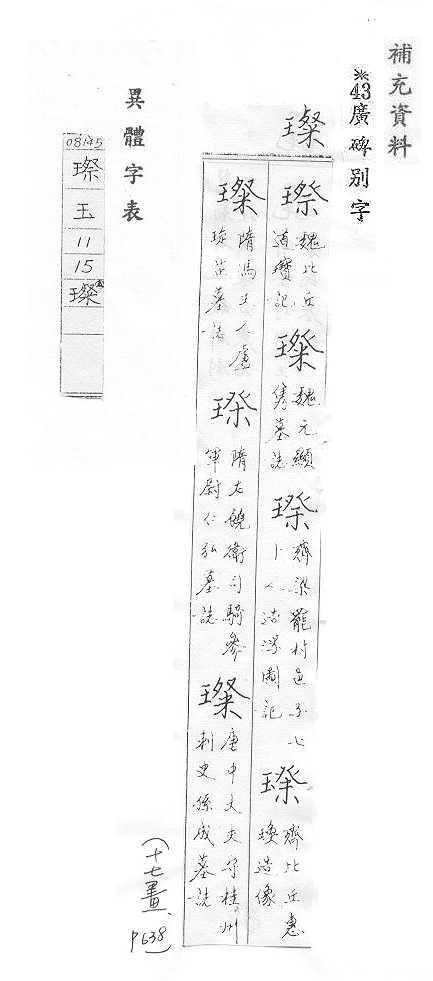 補充資料
※43廣碑別字
璨
璨 魏比丘道瓚記
璨 魏元顯雋墓誌
璨 齊梁罷村邑子七十人造浮圖記
璨 齊比丘惠璨造像
璨 隋馮夫人盧璇芷墓誌
璨 隋右饒衛司騎參軍尉仁弘墓誌
璨 唐中大夫守桂州刺史孫成墓誌
(十七畫、P638)
異體字表
08145
璨
玉
11
15
璨